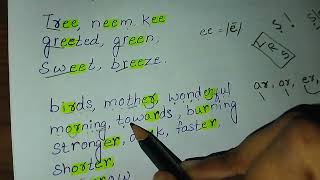 Tree, neem. kee
greeted, green,
Sweet, breeze.
ee = |ē|
birds, mother, wonderful
morning, towards, burning
stronger, faster,
shorter,
ar, or, er